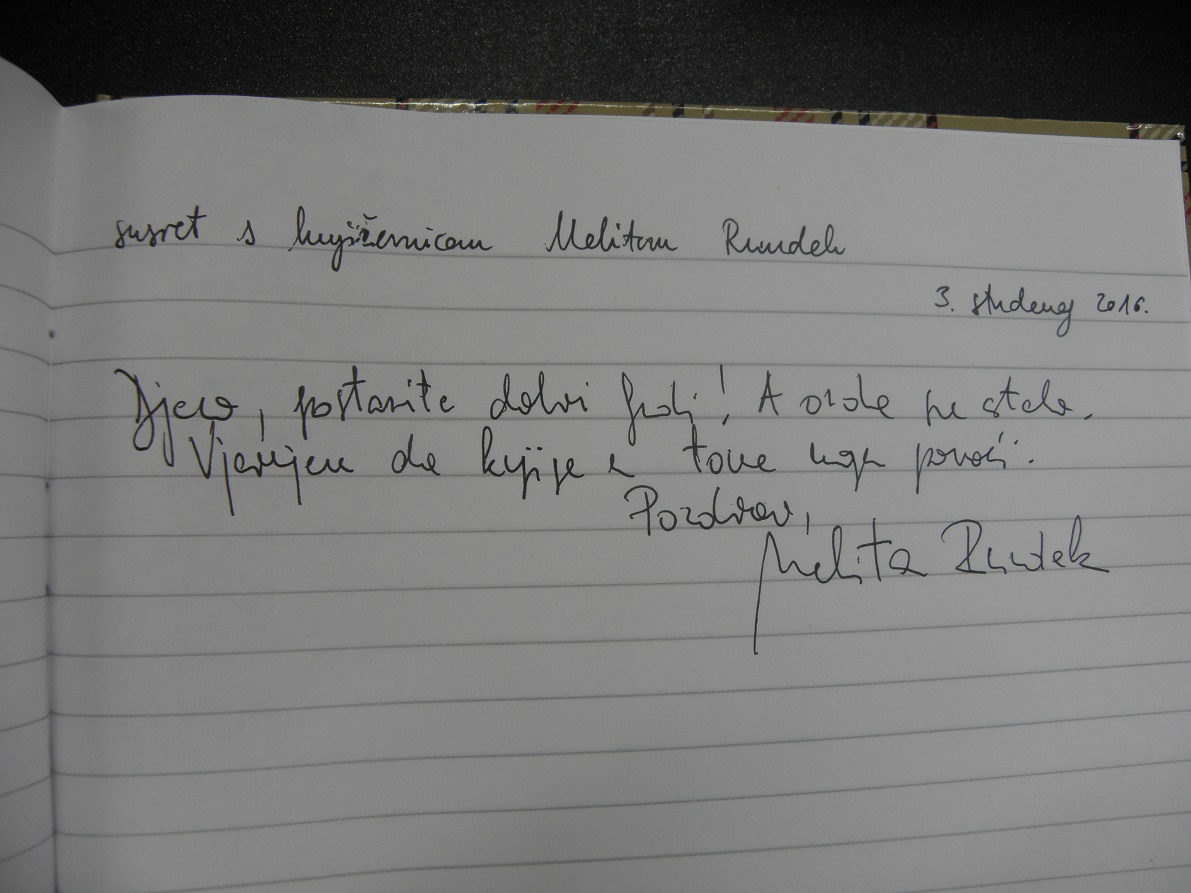 susret s književnicom Melitom Rundek
3. studenog 2016.
Djeco, postanite dobri ljudi! A onda sve ostalo.
Vjerujem da knjige u tome mogu pomoći.
Pozdrav,
Melita Rundek